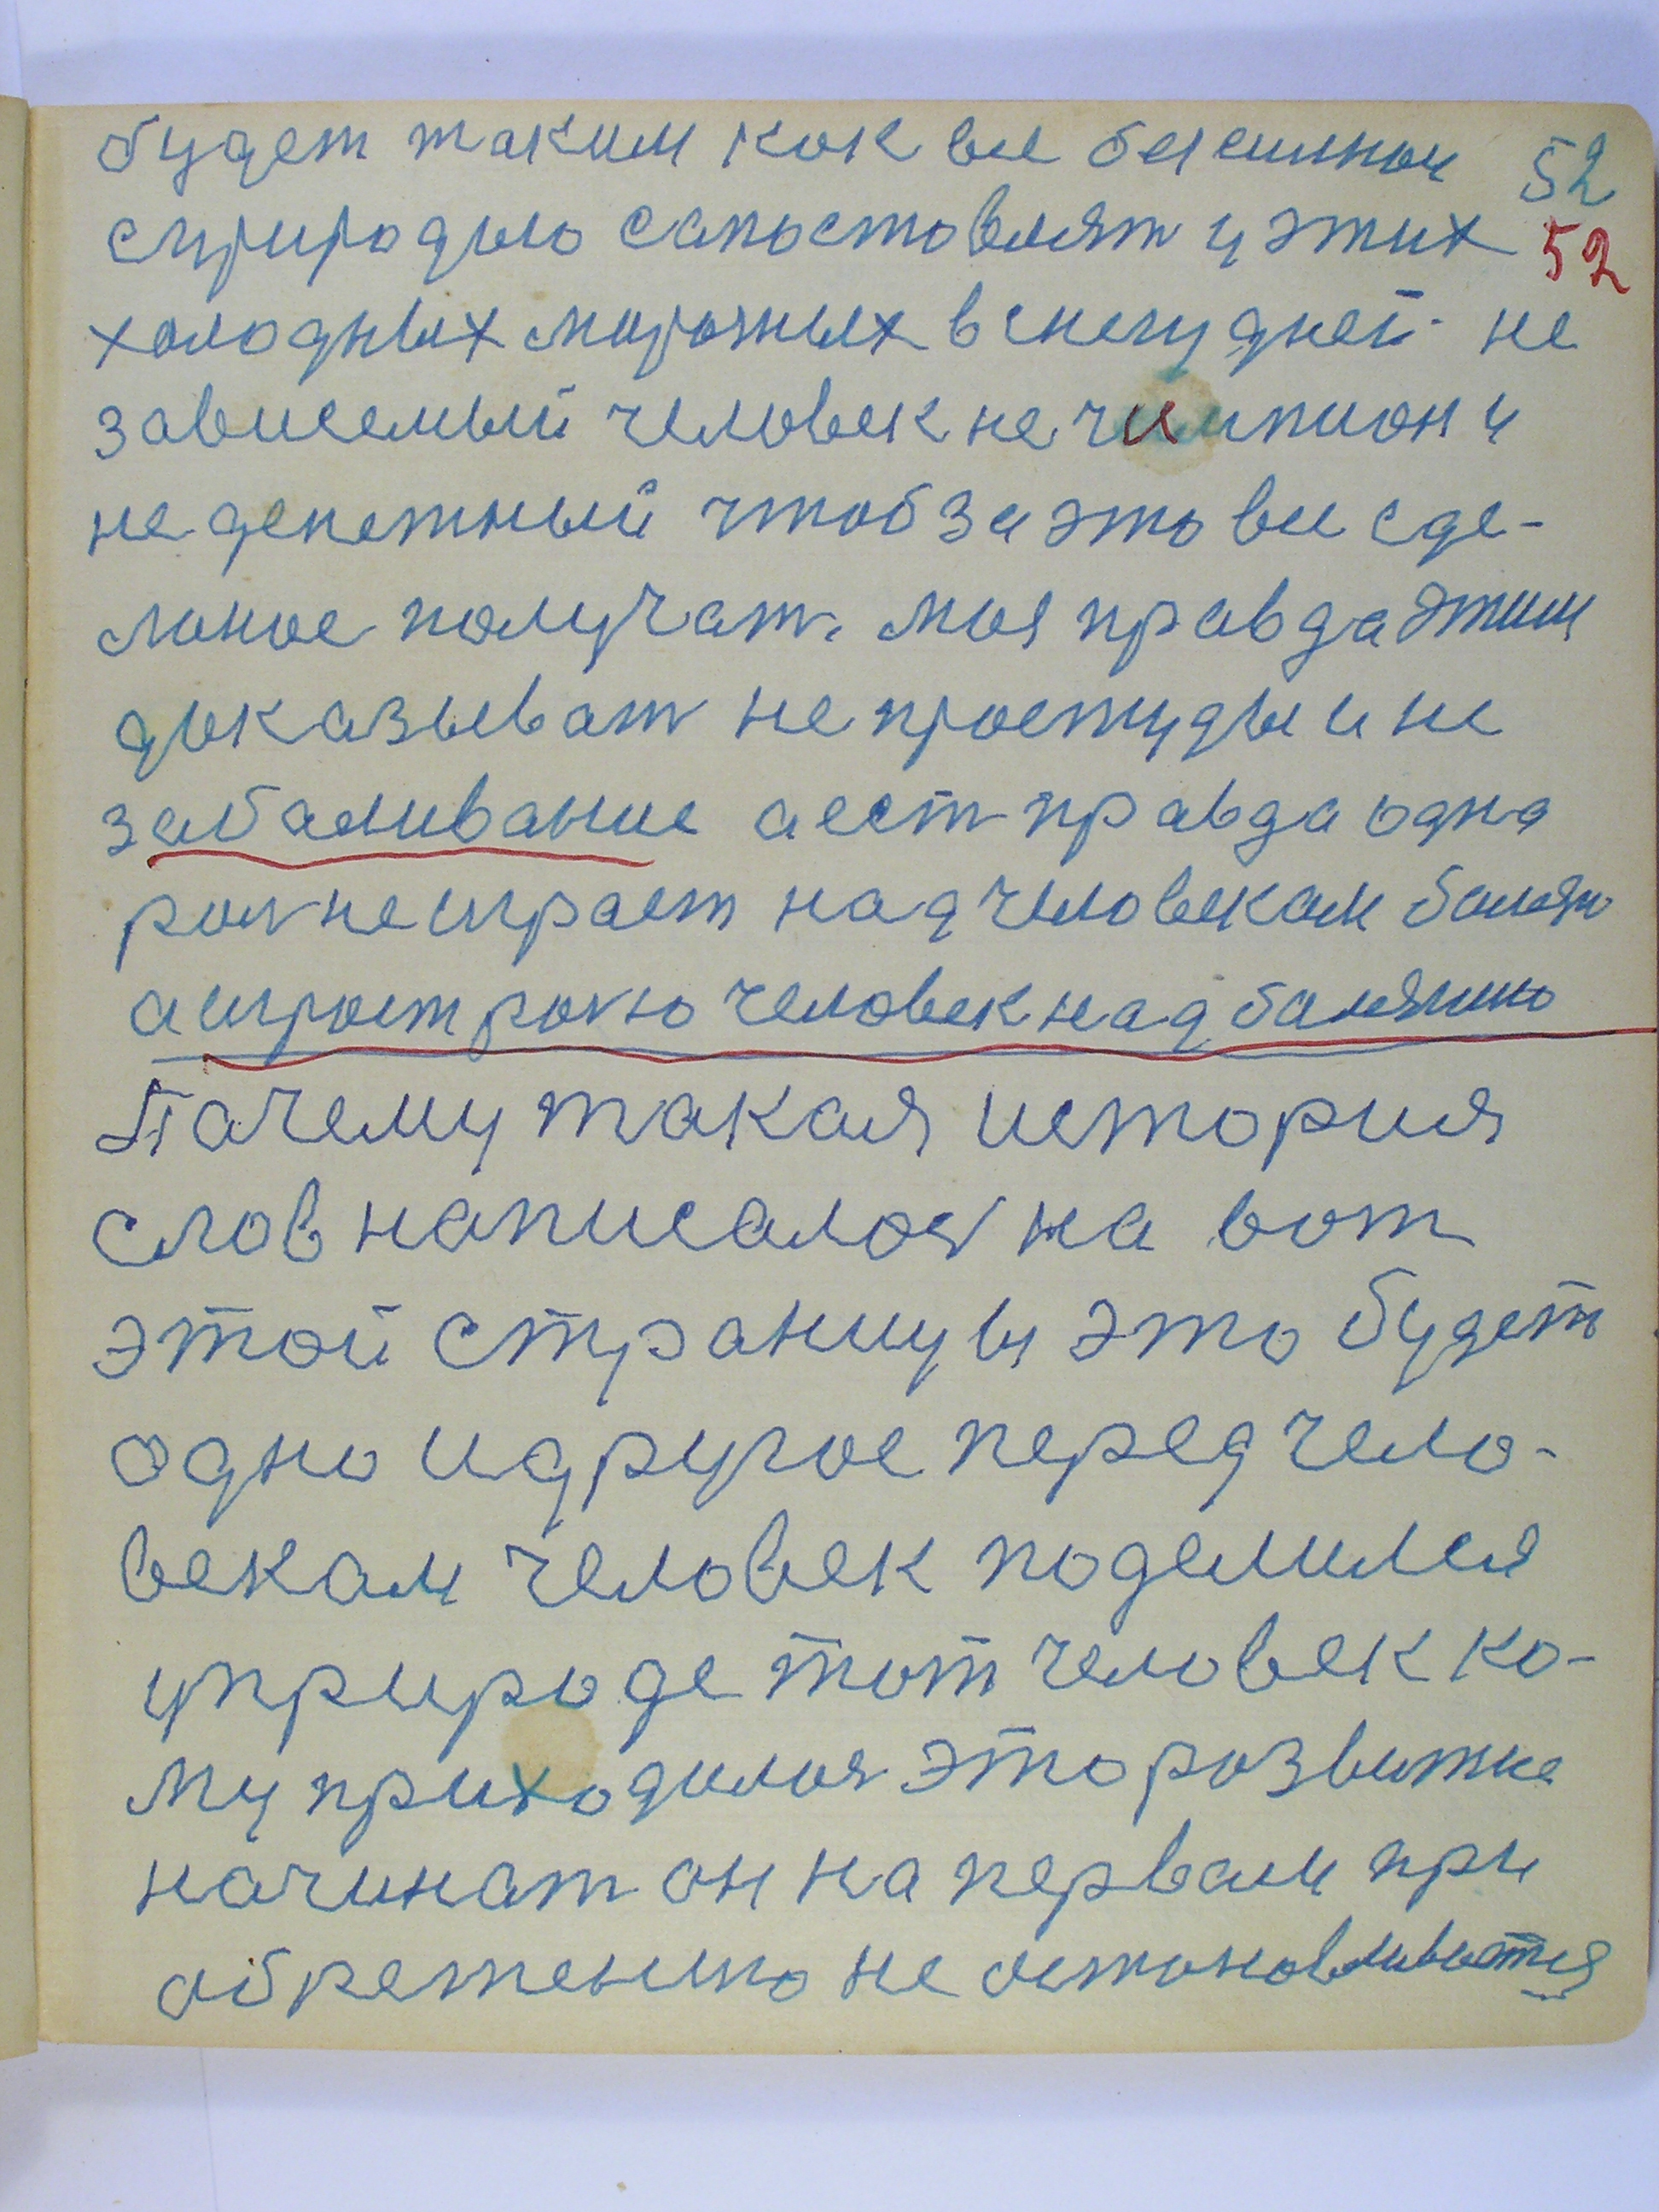 будет таким как вы бессилнои 52
сприродыю сапоставлят у этих 52
холодных морозных в снегу дней не
зависемый человек не чимпион и
не денежный чтоб за это вы сде-
ланое получат. моя правда этим
доказыват не простуды и не
забаливание а ест правда одна
рол не играет над человекам болезн
а играет ролю человек над балезнию
Пачему такая история
слов написалос на вот
этой страницы это будет
одно и другое перед чело-
векам человек поделился
уприроде тот человек ко-
му приходилос это развитие
начинат он на первам при
обретению не астановливается